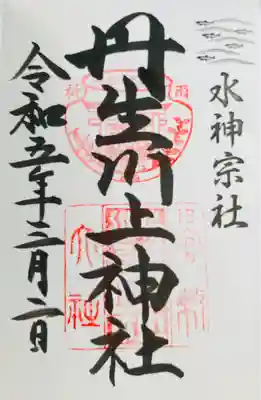 水神宗社
丹生川上神社
令和五年三月二日